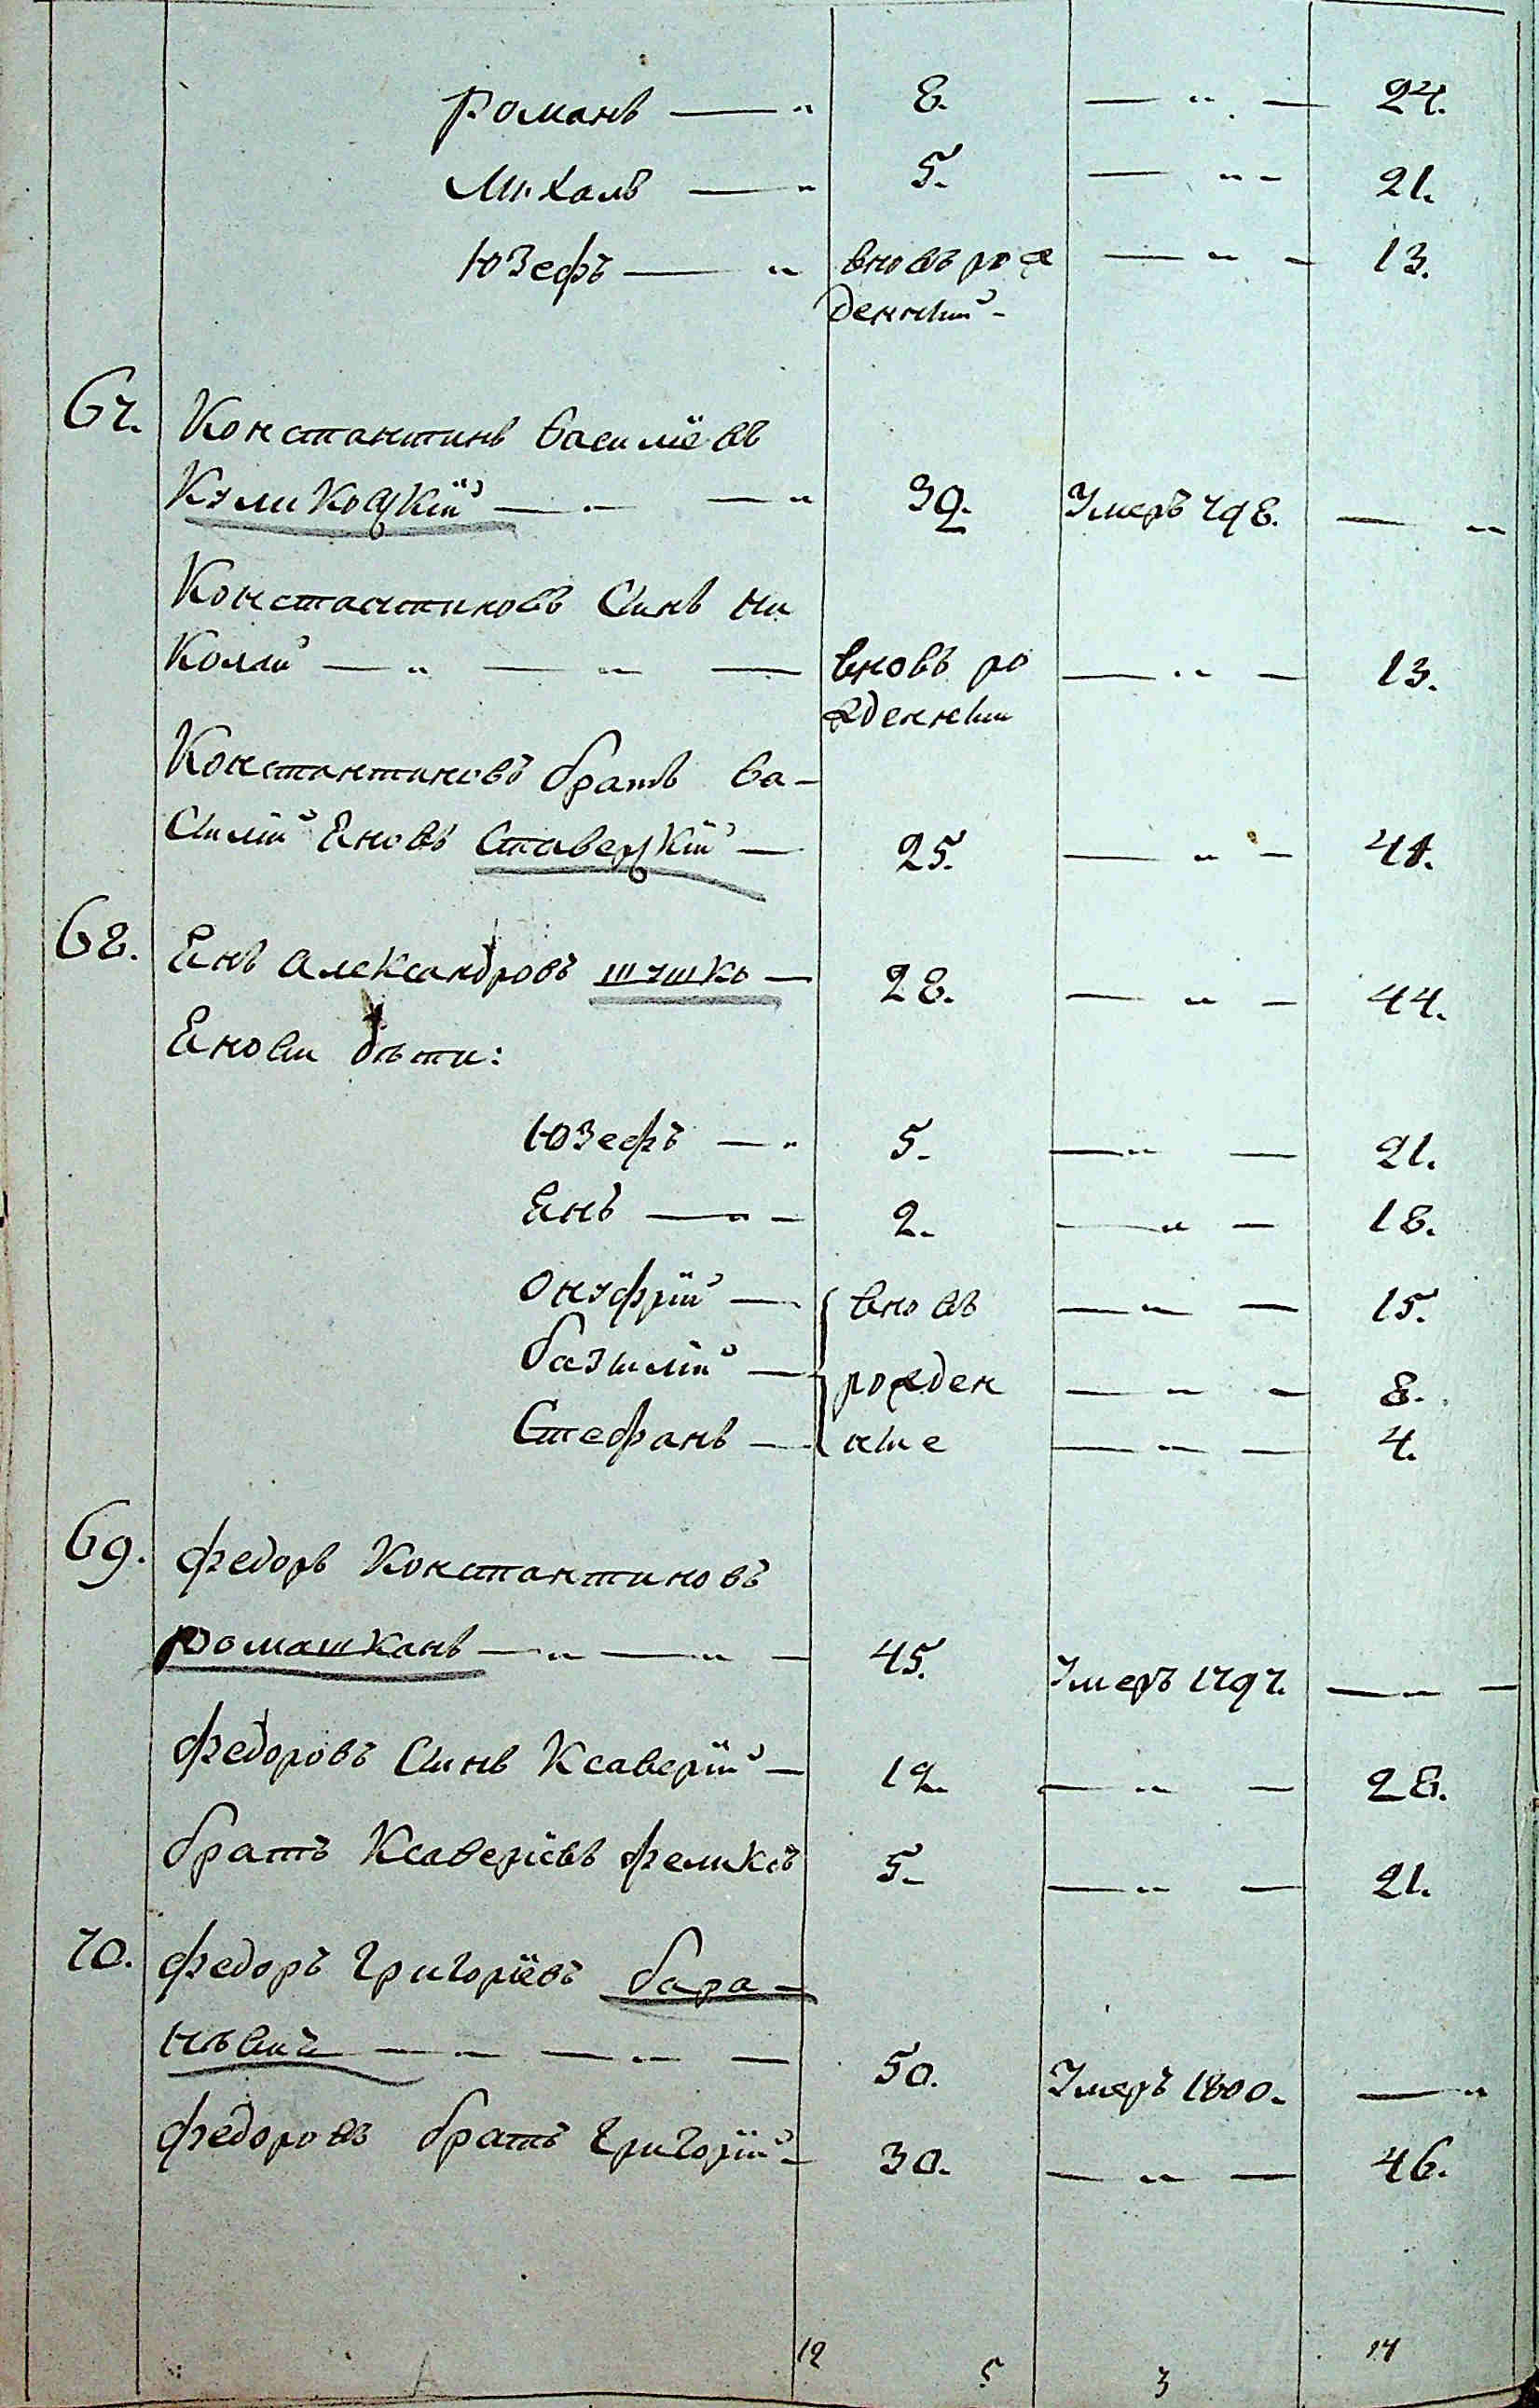 Романъ — „ 8. — „ — 24.
Михалъ — „ 5. — „ — 21.
Юзефъ — „ вновь рож — „ — 13.
денный —
67. Константинъ василіевъ
Куликоцкій — „ — „ 39. Умеръ 798. — „
Константиновъ Синъ Ни
колай — „ — „ — вновь ро — „ — 13.
жденный
Константиновъ братъ ва—
Силій Яновъ Ставецкій — 25. — „ — 41.
68. Янъ Александровъ шушко — 28. — „ — 44.
Яновы дѣти:
Юзефъ — „ 5. — „ — 21.
Янъ — „ — 2. — „ — 18.
Онуфрій — вновь — „ — 15.
базилій — рожден — „ — 8.
Стефанъ — ные — „ — 4.
69. федоръ Константиновъ
ромашканъ — „ — „ — 45. Умеръ 1797. — „ —
федоровъ Синъ Ксаверій — 12. — „ — 28.
братъ Ксаверіевъ феликсъ 5. — „ — 21.
70. федоръ Григоріевъ бара—
нѣвичъ — „ — „ — 50. Умеръ 1800. — „
федоровъ братъ Григорій — 30. — „ — 46.
12 5 3 14